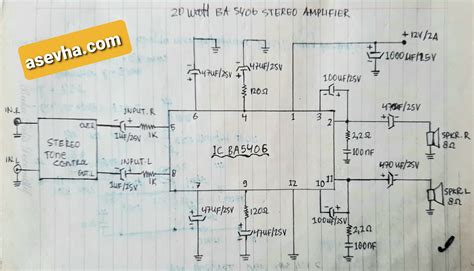 20 Watt BA 5406 STEREO AMPLIFIER
asevha.com
+ 12V/2A
1000UF/25V
47UF/25V
47UF/25V
120Ω
100UF/25V
470UF/25V
IN.R
OUT.R
INPUT.R
1UF/25V
1K
5
6
4
1
3
2
2,2Ω
100NF
SPKR.R
8Ω
STEREO
TONE
CONTROL
IC BA5406
IN.L
OUT.L
INPUT.L
1UF/25V
1K
8
7
9
12
10
11
470UF/25V
SPKR.L
8Ω
47UF/25V
120Ω
47UF/25V
100UF/25V
2,2Ω
100NF